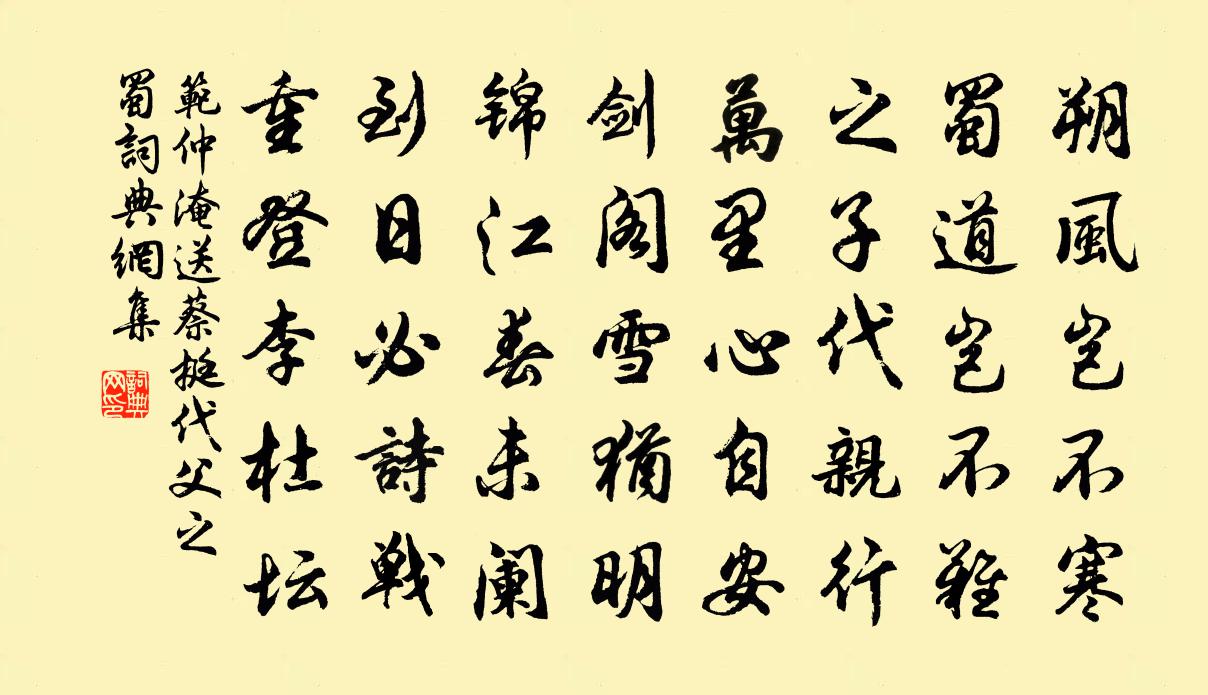 朔風岂不寒
蜀道岂不難
之子代親行
萬里心自安
剑阁雪猶明
锦江春未阑
到日必詩戦
重登李杜坛
範仲淹送蔡挺代父之
蜀詞典網集
詞典
网印